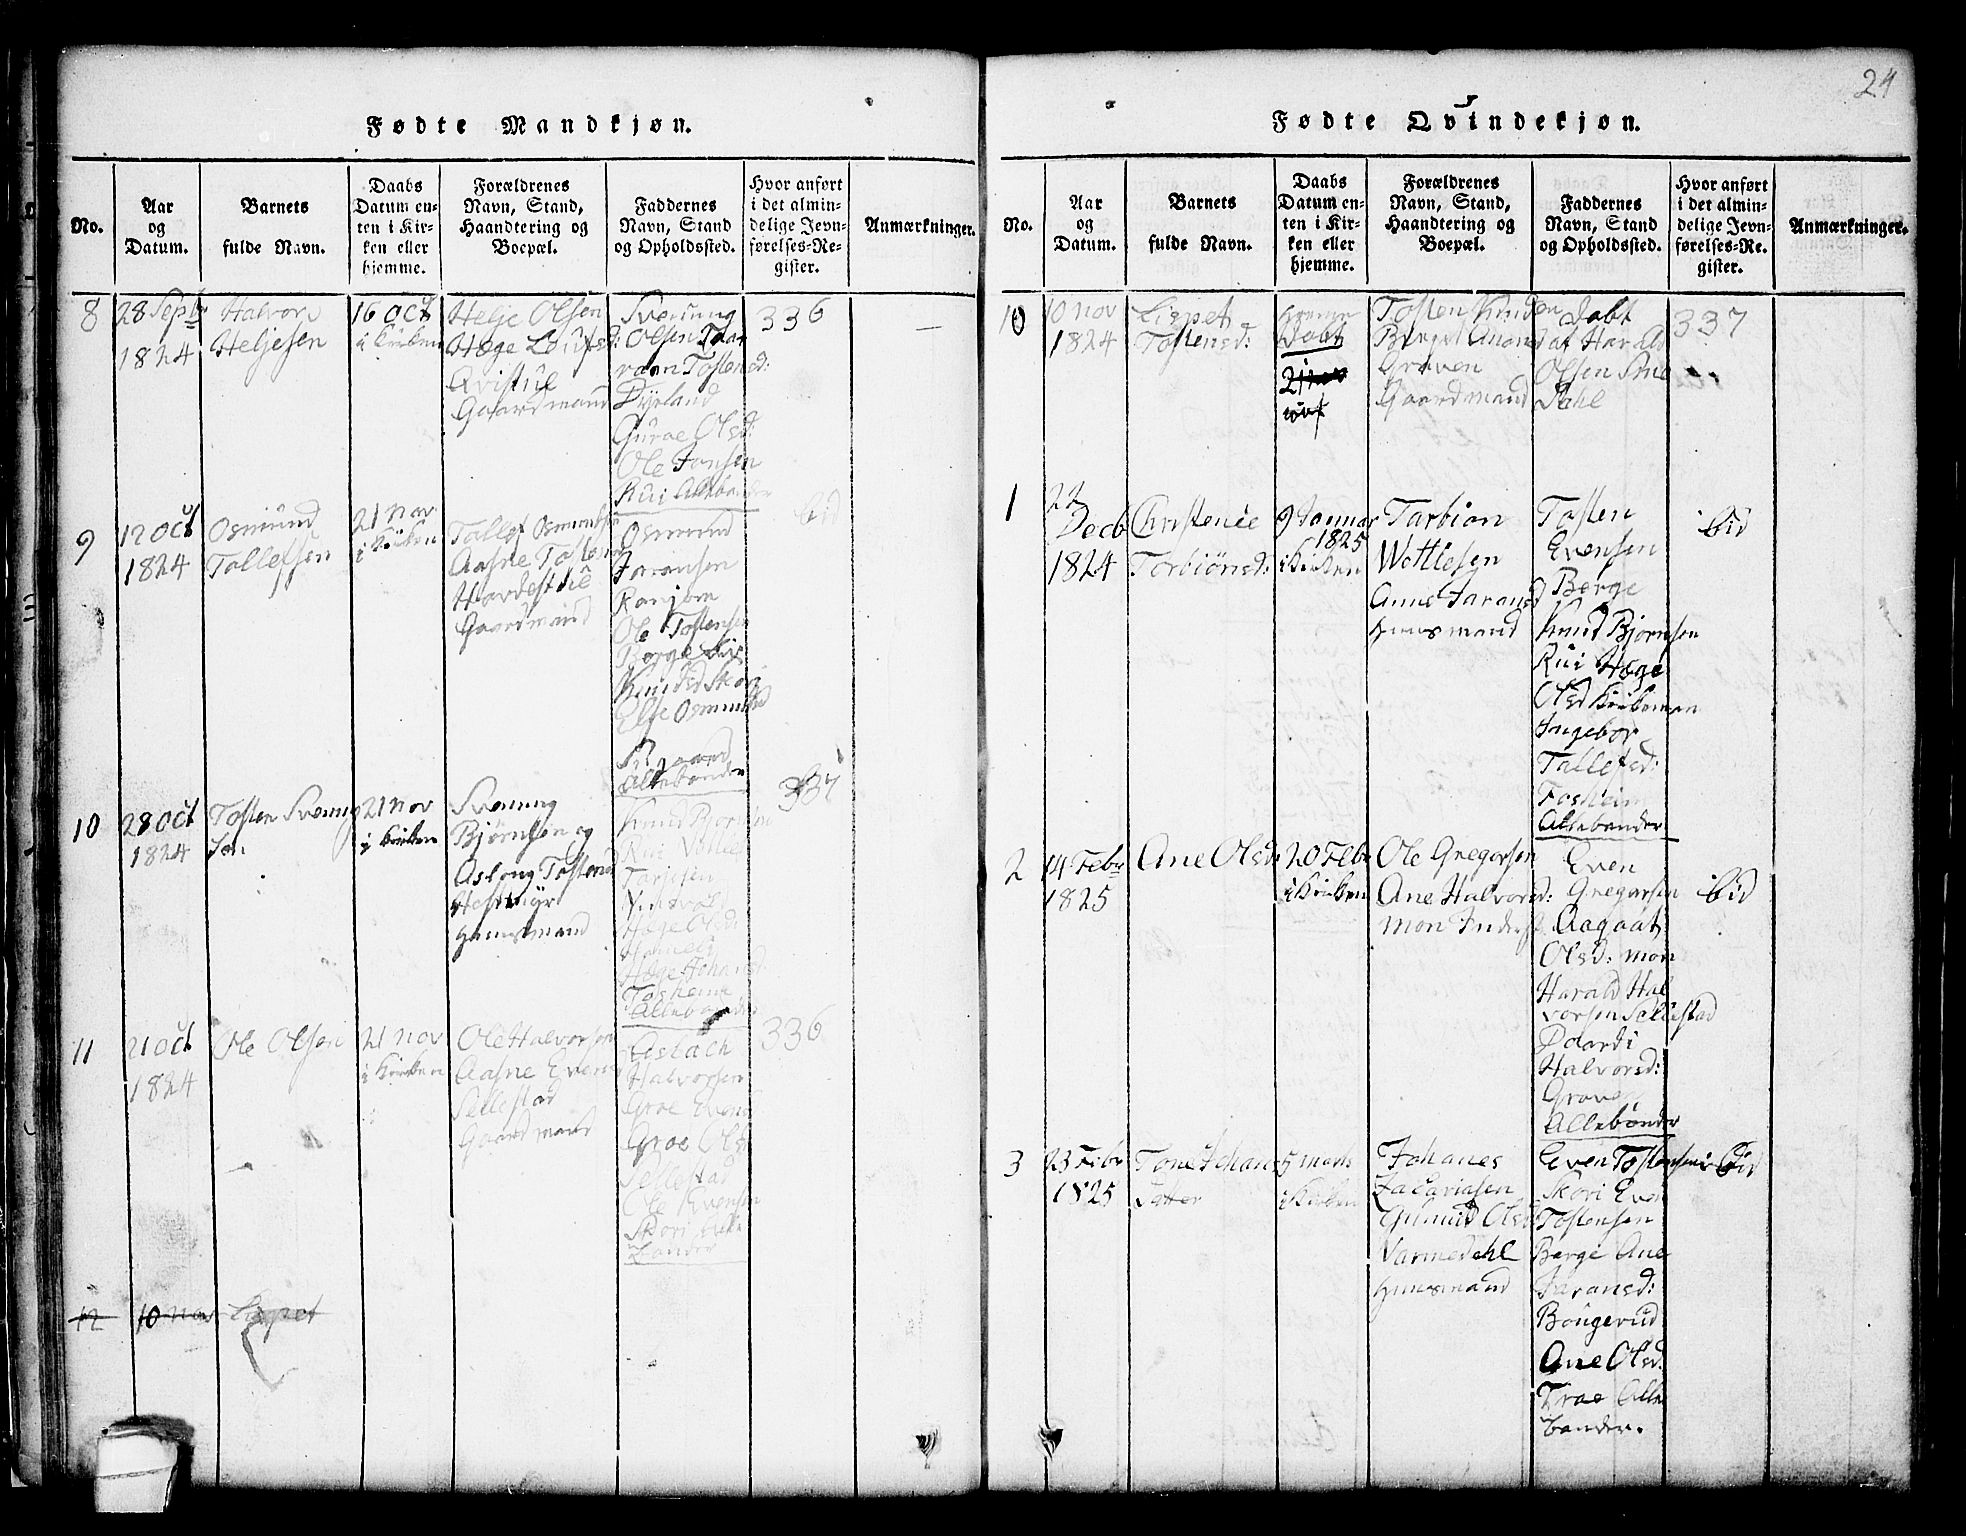 Fødte Mandkjøn.
No.
Aar
og
Datum.
Barnets
fulde Navn.
Daabs
Datum en-
ten i Kir-
ken eller
hjemme.
Forældrenes
Navn, Stand,
Haandtering og
Boepæl.
Faddernes
Navn, Stand
og Opholdssted.
Hvor anført
i det almin-
delige Jevn-
førelses-Re-
gister.
Anmærkninger.
8
28 Septb
1824
Halvor
Heljesen
16 Oct
i Kirken
Helje Olsen
Høge Loufsd:
Gaardmand
Svenung
Olsen Taa
raan Tostensd:
Dyrland
Guroe Olsd:
Ole Jonsen
Rui Allebønder
336
—
9
12 Oct
1824
Osmund
Tallefsen
21 Nov
i Kirken
Tallef Osmundsen
Aasne Tostensd
Gaardmand
Osmund
Jaransen
Ole Tostensen
Berge
Else Osmundsd
Allebønder
bid
10
28 Oct
1824
Tosten Svenung
Søn
21 Nov
i Kirken
Svenung
Bjørnsen og
Aslaug Tostensd
Hestmyr
Huusmand
Knud Bjørnsen
Rui
Tarjesen
Høge Olsd:
Høge Johansd
Fosheim
Allebønder
337
11
21 Oct
1824
Ole Olsen
21 Nov
i Kirken
Ole Halvorsen
Aasne Evens
Sellestad
Gaardmand
Aslach
Halvorsen
Groe Evens
Groe Olsd
Sellestad
Ole Evensen
Skori
bønder
336
12
10 Nov
Lispet
24
Fødte Qvindekjøn.
No.
Aar
og
Datum.
Barnets
fulde Navn.
Daabs
Datum en-
ten i Kir-
ken eller
hjemme.
Forældrenes
Navn, Stand,
Haandtering og
Boepæl.
Faddernes
Navn, Stand
og Opholdssted.
Hvor anført
i det almin-
delige Jevn-
førelses-Re-
gister.
Anmærkninger.
10
10 Nov
1824
Lispet
Tostensd:
Hiemme
Døbt
21 Nov
Tosten Knudsen
Graven
Gaardmand
Døbt
af Harald
Olsen
Dahl
337
1
22
Decb
1824
Christenie
Torbiønsd:
9 Januar
1825
i Kirken
Tarbion
Wettlesen
Anne Jaransd
Huusmand
Tosten
Evensen
Berge
Knud Bjørnsen
Rui Høge
Olsd
Ingebor
Tallefsd:
Fosheim
Allebønder
bid
2
14 Feb
1825
Ane Olsd:
20 Feb
i Kirken
Ole Gregorsen
Ane Halvorsd:
Even
Gregarsen
Aagaat
Olsd: Mon
Harald Hal
vorsen Sellestad
Halvorsd:
Grave
Allebønder
bid
3
23 Feb
1825
Tone Johans
Datter
5 Marts
i Kirken
Johanes
Zacariasen
Gunnild Olsd
Varmedahl
Huusmand
Even Tostensen
Skori Even
Tostensen
Berge Ane
Jaransd:
Bøngerud
Ane Olsd:
Trae Alle
bønder.
bid